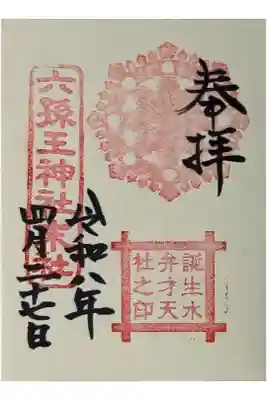 奉拝
六孫王神社末社
誕生水
弁才天
社之印
令和八年
四月二十七日